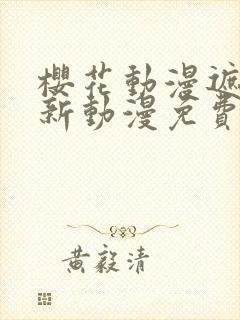 櫻花動漫遮
新動漫免費
黃毅清